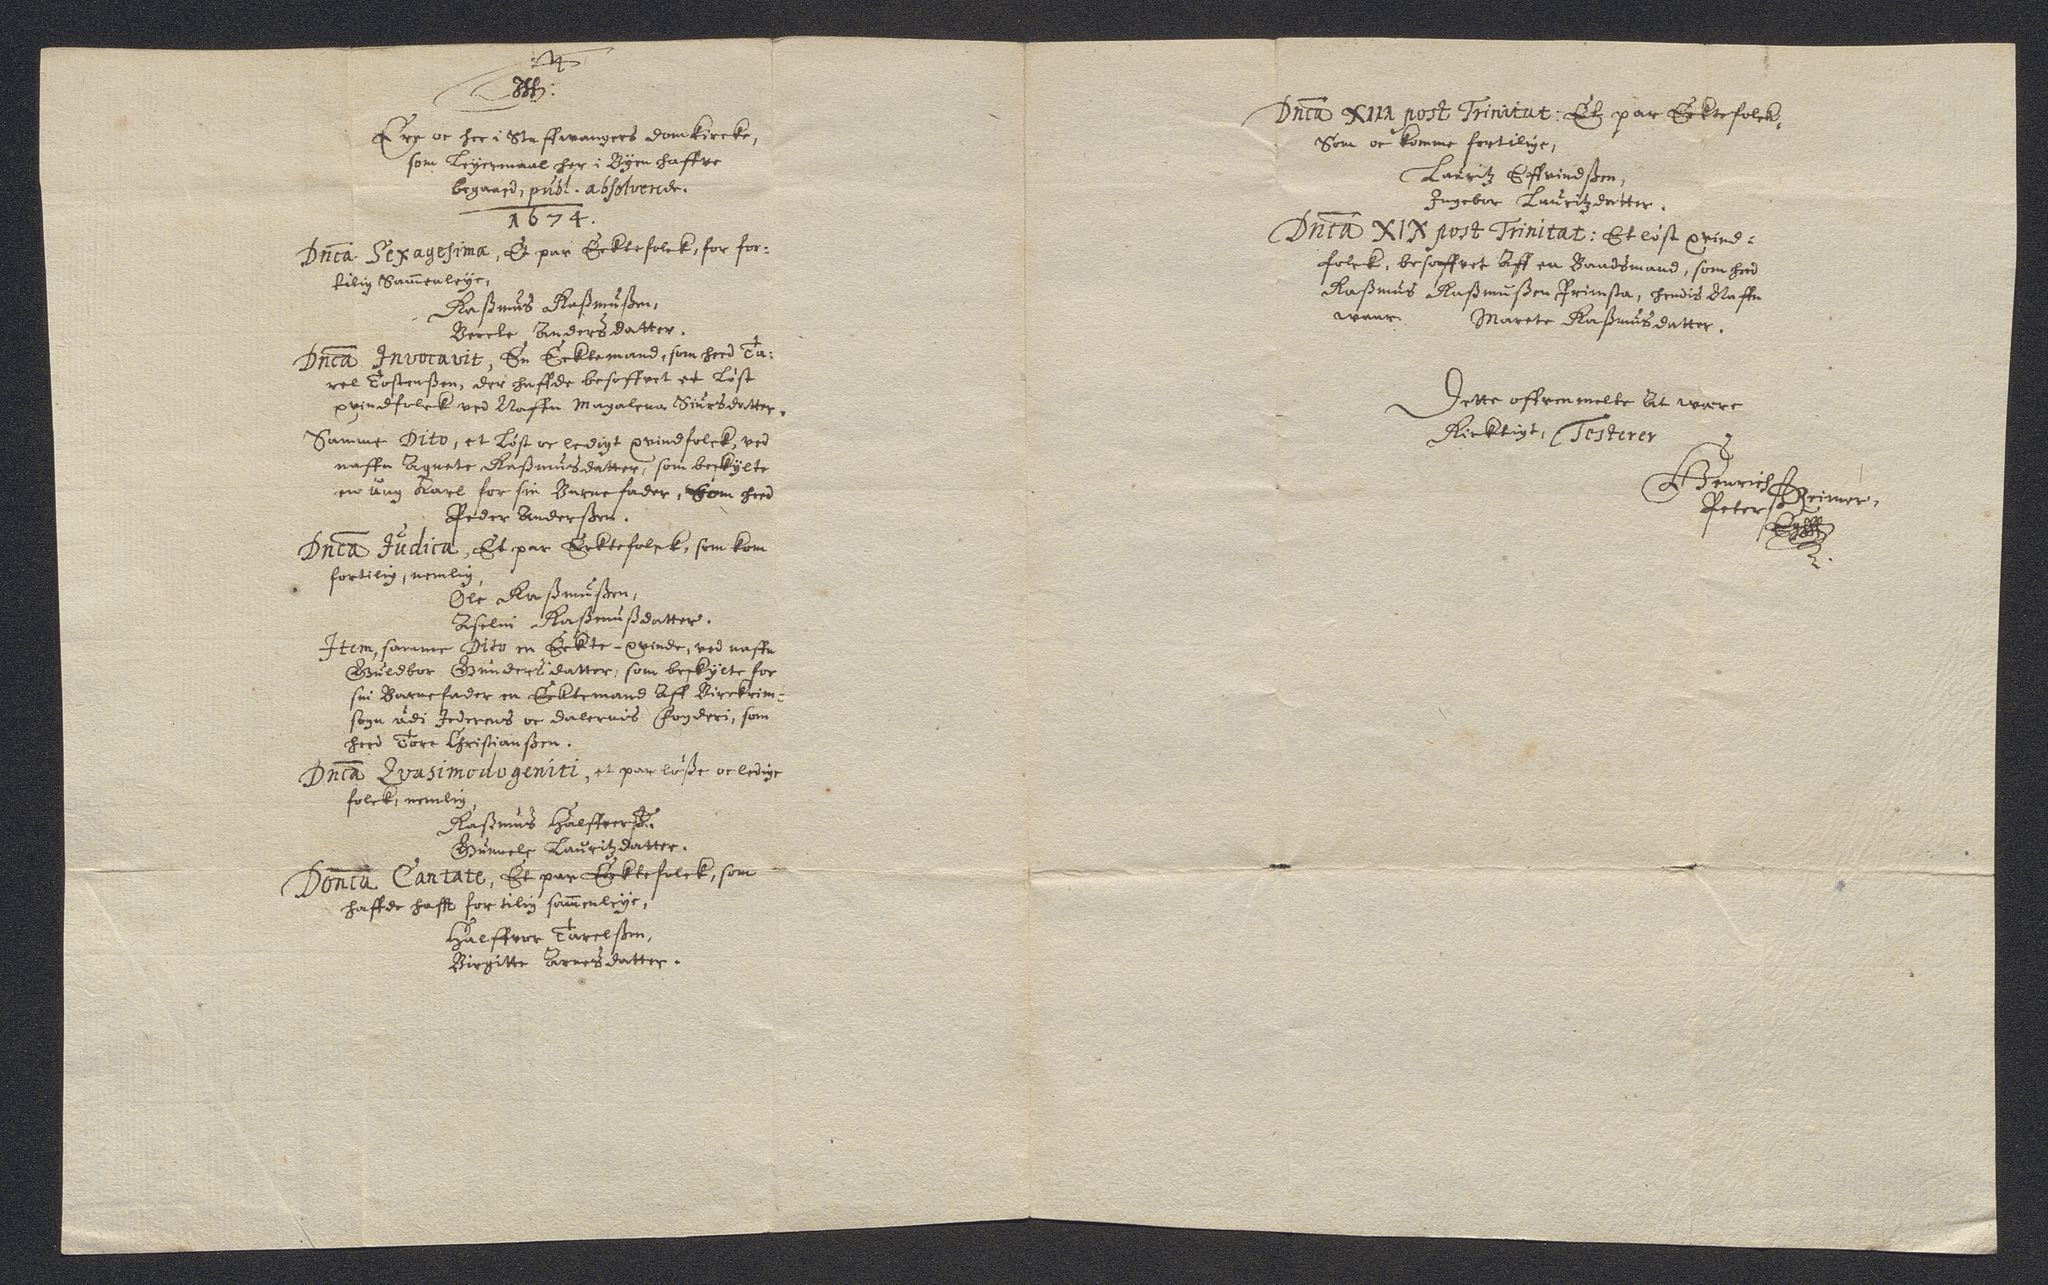 Ere oc her i Staffwangers domkircke,
som Leyermaal her i Byen haffve
begaaed, publ. absolverede.
1674.
Dnca Sexagesima, Et par Ecktefolck, for for-
tilig Sammenleye,
Raßmus Raßmußen,
Berete Andersdatter.
Dnca Invocavit, En Ecktemand, som heed Ta-
rel Tostenßen, der haffde besoffvet et Løst
qvindfolck ved Naffn Magalena Siursdatter.
Samme Dito, et Løst oc ledigt qvindfolck, ved
naffn Agnete Raßmusdatter, som beskylte
en ung Karl for sin Barnefader, som heed
Peder Anderßen.
Dnca Judica, Et par Ecktefolck, som kom
fortilig, nemlig,
Ole Raßmußen,
Aselin Raßmußdatter.
Item, samme Dito en Eckte-qvinde, ved naffn
Guldbor Gundersdatter, som beskylte for
sin Barnefader en Ecktemand Aff Birckrim-
sogn udi Jederens oc dalernis fogderi, som
heed Tore Christianßen.
Dnca Qvasimodogeniti, et par løße oc ledige
folck, nemlig,
Raßmus Halffverß.
Gunnele Lauritzdatter.
Donca Cantate, Et par Ecktefolck, som
haffde hafft for tilig sammenleye,
Halffvor Tarelßen,
Birgitte Arnesdatter.
Dnca XIIX post Trinitat: Et par Ecktefolck,
Som oc komme fortilige,
Lauritz Effvindßen,
Ingebor Lauritzdatter.
Dnca XIX post Trinitat: Et løst qvind-
folck, besoffvet Aff en Baadsmand, som heed
Raßmus Raßmußen Primsta, hendis Naffn
waar Marete Raßmusdatter.
Dette offvenmelte At være
Ricktigt, Testerer
Henrich Reimer,
Peterß